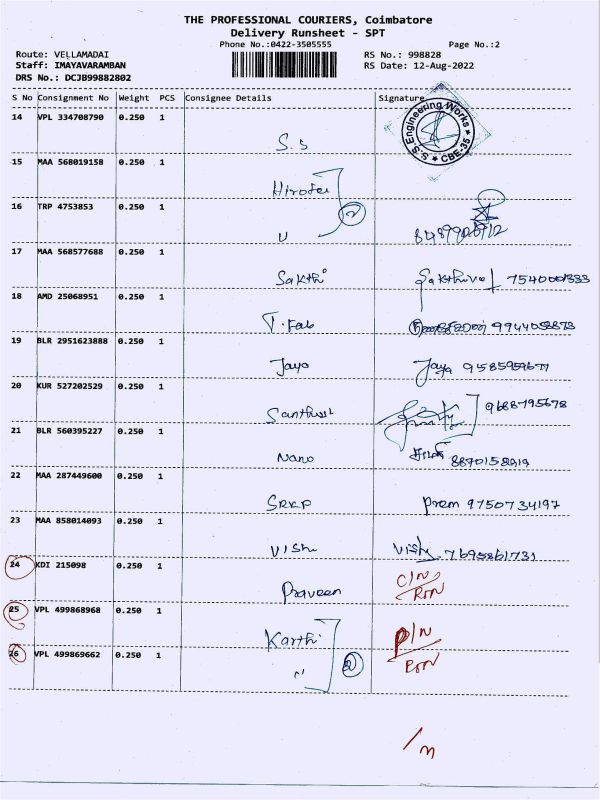 THE PROFESSIONAL COURIERS, Coimbatore
Delivery Runsheet - SPT
Phone No.:0422-3505555 Page No.:2
Route: VELLAMADAI RS No.: 998828
Staff: IMAYAVARAMBAN RS Date: 12-Aug-2022
DRS No.: DCJB99882802
S No Consignment No Weight PCS Consignee Details Signature
S.S. Engineering Works ★ CBE-35 ★
14 VPL 334708790 0.250 1
S.S
15 MAA 568019158 0.250 1
16 TRP 4753853 0.250 1
2
U
17 MAA 568577688 0.250 1
Sakthi Sakthivel 7540001333
18 AMD 25068951 0.250 1
T. Fab 9944052873
19 BLR 2951623888 0.250 1
Jaya Jaya 9585959671
20 KUR 527202529 0.250 1
9688795678
21 BLR 560395227 0.250 1
Nano
22 MAA 287449600 0.250 1
SRKP Prem 9750734197
23 MAA 858014093 0.250 1
Vishu Vishu 7695861731
24 KDI 215098 0.250 1
Praveen C/N
25 VPL 499868968 0.250 1
Karthi P/N
26 VPL 499869662 0.250 1
" 2